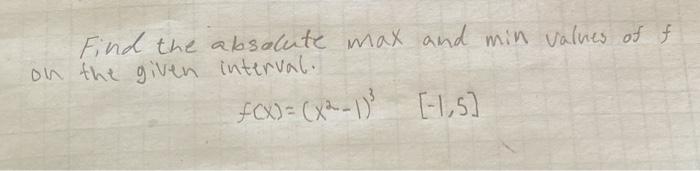 Find the absolute max and min values of f
on the given interval.
f(x) = (x²-1)³ [-1,5]